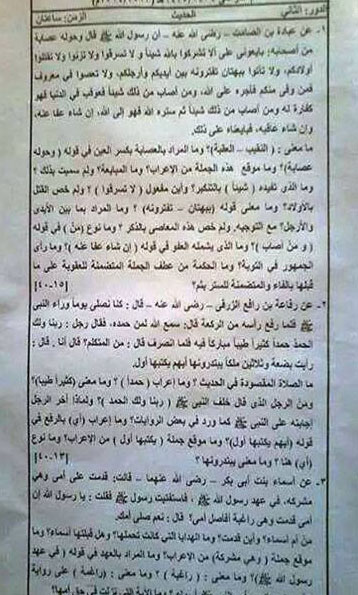 الدور: الثاني الحديث الزمن: ساعتان
١- عن عبادة بن الصامت – رضى الله عنه – أن رسول الله ﷺ قال وحوله عصابة
من أصحابه: بايعونى على ألا تشركوا بالله شيئاً ولا تسرقوا ولا تزنوا ولا تقتلوا
أولادكم، ولا تأتوا ببهتان تفترونه بين أيديكم وأرجلكم، ولا تعصوا في معروف
فمن وفى منكم فأجره على الله، ومن أصاب من ذلك شيئاً فعوقب في الدنيا فهو
كفارة له ومن أصاب من ذلك شيئاً ثم ستره الله فهو إلى الله، إن شاء عفا عنه،
وإن شاء عاقبه، فبايعناه على ذلك.
ما معنى : (النقيب – العقبة)؟ وما المراد بالعصابة بكسر العين في قوله ( وحوله
عصابة)؟ وما موقع هذه الجملة من الإعراب؟ وما المبايعة؟ ولم سميت بذلك ؟
وما الذى تفيده ( شيئاً ) بالتنكير؟ وأين مفعول ( لا تسرقوا ) ؟ ولم خص القتل
بالأولاد؟ وما معنى قوله (ببهتان – تفترونه) ؟ وما المراد بما بين الأيدى
والأرجل؟ مع التوجيه. ولم خص هذه المعاصى بالذكر ؟ وما نوع (من ) في قوله
( و من أصاب )؟ وما الذى يشمله العفو في قوله ( إن شاء عفا عنه )؟ وما رأى
الجمهور في التوبة؟ وما الحكمة من عطف الجملة المتضمنة للعقوبة على ما
قبلها بالفاء والمتضمنة للستر بثم؟ [١٥-٤٠]
٢- عن رفاعة بن رافع الزرقى – رضى الله عنه – قال : كنا نصلى يوماً وراء النبى
ﷺ فلما رفع رأسه من الركعة قال: سمع الله لمن حمده، فقال رجل : ربنا ولك
الحمد حمداً كثيراً طيباً مباركاً فيه فلما انصرف قال : من المتكلم؟ قال أنا . قال :
رأيت بضعة وثلاثين ملكاً يبتدرونها أيهم يكتبها أول.
ما الصلاة المقصودة في الحديث ؟ وما إعراب ( حمداً ) ؟ وما معنى (كثيراً طيباً)؟
ومن الرجل الذى قال خلف النبى ﷺ ( ربنا ولك الحمد )؟ ولماذا أخر الرجل
إجابته على النبى ﷺ كما ورد في بعض الروايات؟ وما إعراب (أي) بالرفع في
قوله (أيهم يكتبها أول)؟ وما موقع جملة ( يكتبها أول ) من الإعراب؟ وما نوع
(أي) هنا ؟ وما معنى يبتدرونها ؟ [١٣-٤٠]
٣- عن أسماء بنت أبى بكر – رضى الله عنهما – قالت: قدمت على أمى وهي
مشركة. في عهد رسول الله ﷺ، فاستفتيت رسول الله ﷺ فقلت : يا رسول الله إن
أمى قدمت وهى راغبة أفاصل أمى؟ قال : نعم صلى أمك.
من أم أسماء؟ وأين قدمت؟ وما الهدايا التى كانت تحملها؟ وهل قبلتها أسماء؟ وما
موقع جملة ( وهي مشركة) من الإعراب؟ وما المراد بالعهد في قوله ( في عهد
رسول الله ﷺ)؟ وما معنى : ( راغبة ) ؟ وما معنى : (راغمة) على رواية